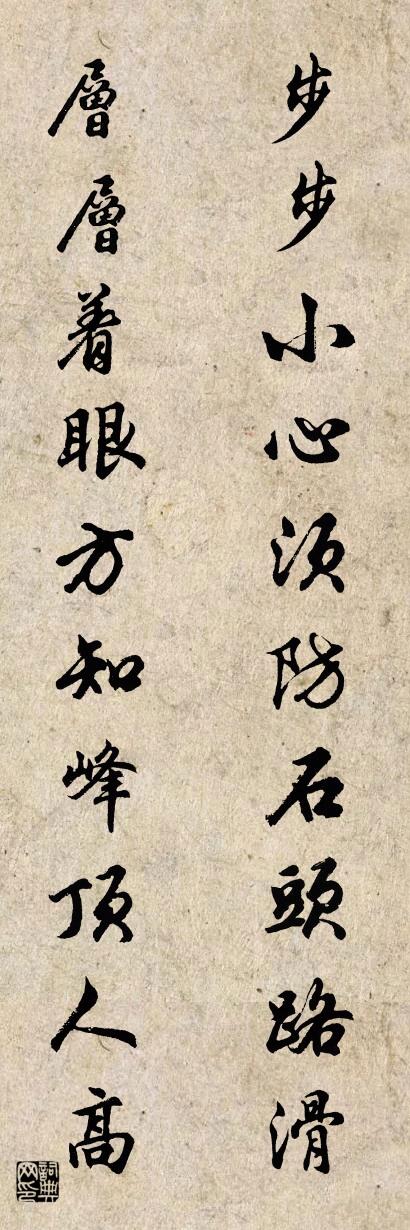 步步小心須防石頭路滑
層層着眼方知峰頂人高
詞典网印